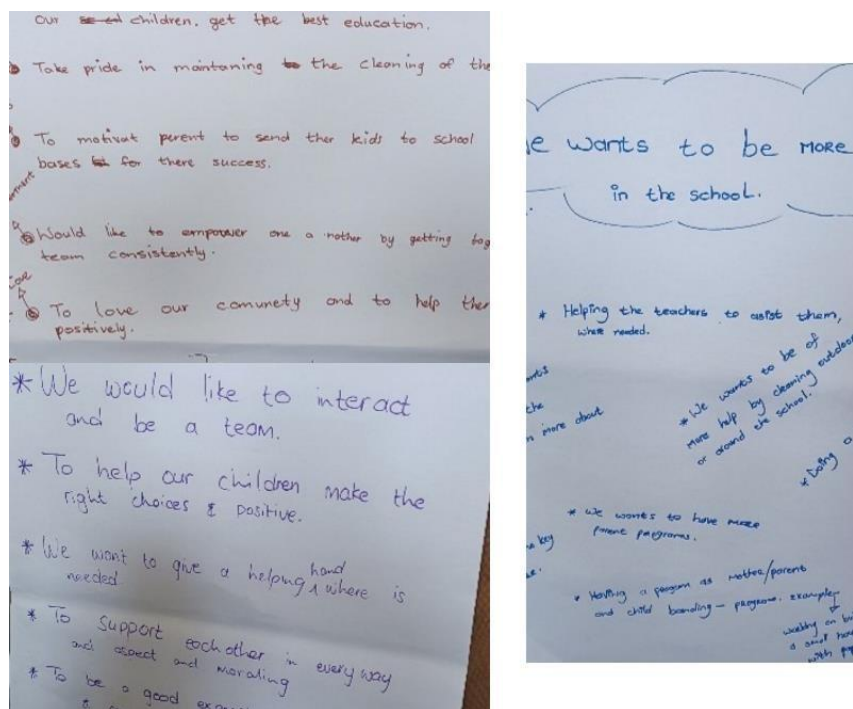 our children. get the best education.
Take pride in maintaning the cleaning of the
To motivat perent to send ther kids to school
bases for there success.
Would like to empower one a nother by getting tog
team consistently.
To love our comunety and to help ther
positively.
* We would like to interact
and be a team.
* To help our children make the
right choices & positive.
* We want to give a helping hand where is
needed
* To support each other in every way
and aspect and moraling
* To be a good
e wants to be MORE
in the school.
* Helping the teachers to asist them,
where needed.
the
more about
* We wants to be of
more help by cleaning outdoor
or around the school.
* Doing
* We wants to have more
parent programs.
key
* Having a program as mother/parent
and child bonding - programs. example
a small
with